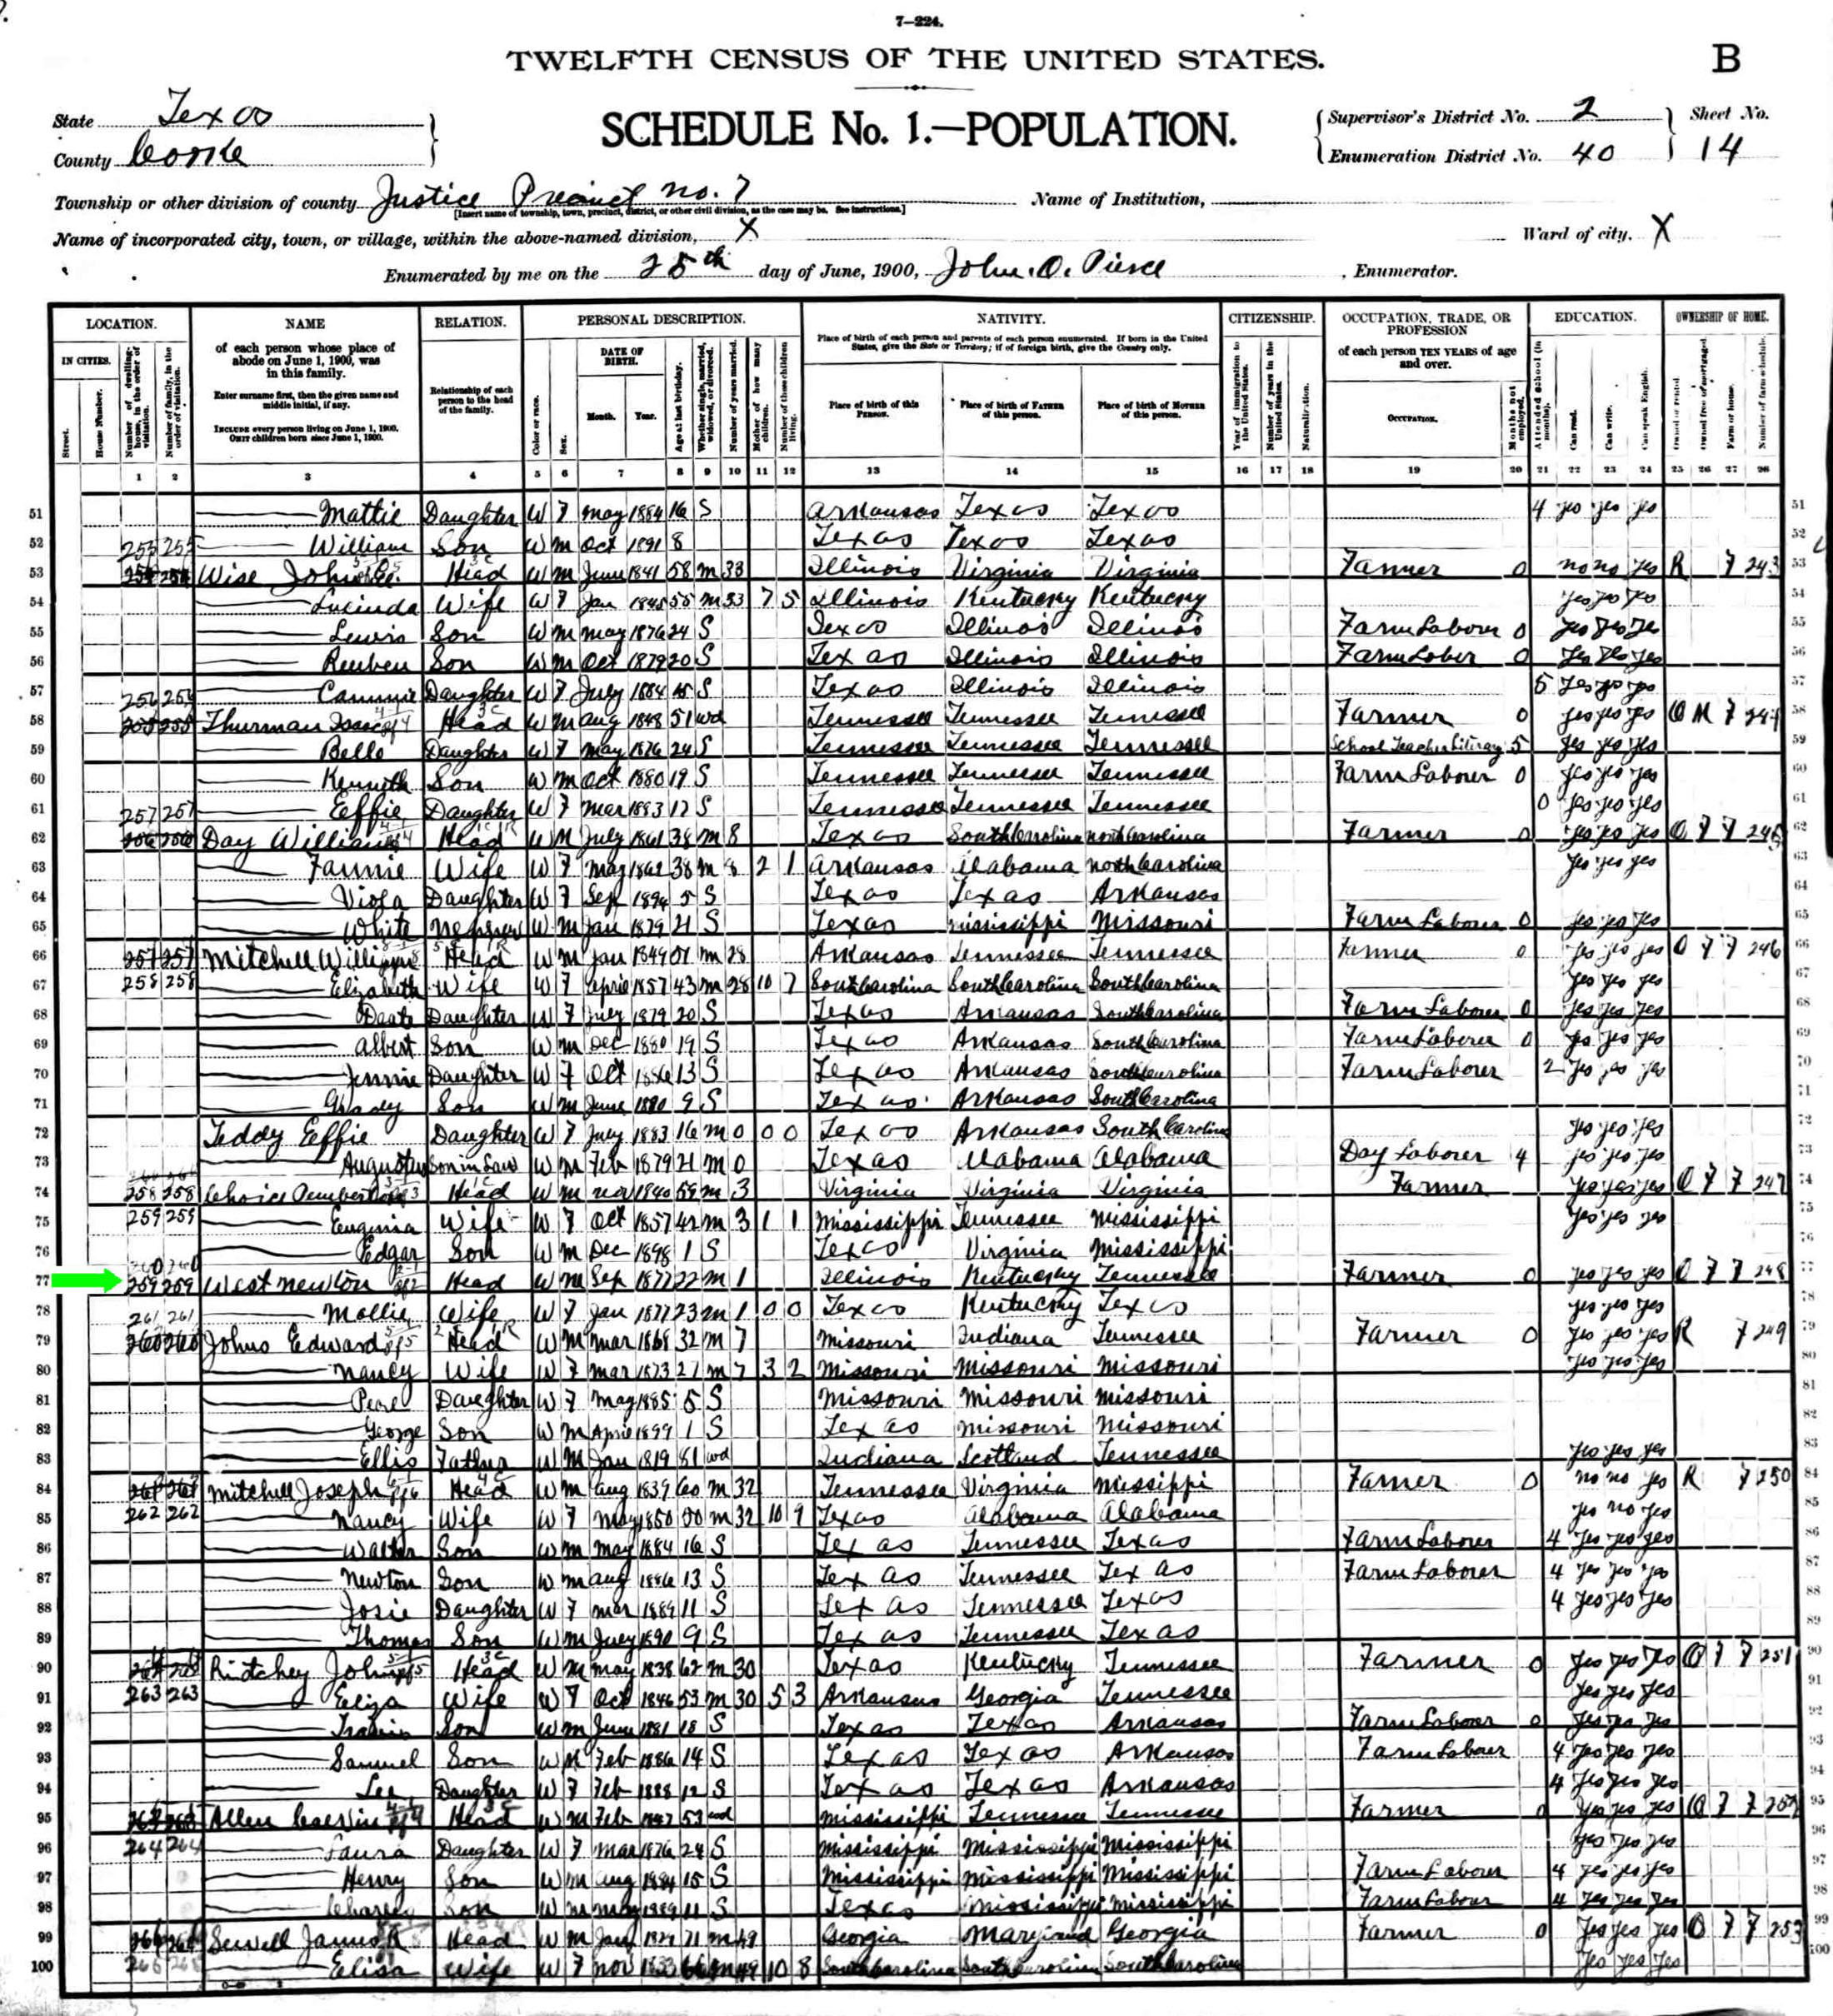 7—224.
TWELFTH CENSUS OF THE UNITED STATES.
B
State Texas
SCHEDULE No. 1.—POPULATION.
Supervisor's District No. 2
Sheet No.
County Cooke
Enumeration District No. 40
14
Township or other division of county Justice Precinct no. 7
Name of Institution,
[Insert name of township, town, precinct, district, or other civil division, as the case may be. See instructions.]
Name of incorporated city, town, or village, within the above-named division, X
Ward of city, X
Enumerated by me on the 25th day of June, 1900, John. O. Pierce, Enumerator.
LOCATION. NAME RELATION. PERSONAL DESCRIPTION. NATIVITY. CITIZENSHIP. OCCUPATION, TRADE, OR PROFESSION EDUCATION. OWNERSHIP OF HOME.
IN CITIES. Street. House Number. Number of dwelling-house, in the order of visitation. Number of family, in the order of visitation.
of each person whose place of abode on June 1, 1900, was in this family.
Enter surname first, then the given name and middle initial, if any.
INCLUDE every person living on June 1, 1900. OMIT children born since June 1, 1900.
Relationship of each person to the head of the family.
Color or race. Sex. DATE OF BIRTH. Month. Year. Age at last birthday. Whether single, married, widowed, or divorced. Number of years married. Mother of how many children. Number of these children living.
Place of birth of each person and parents of each person enumerated. If born in the United States, give the State or Territory; if of foreign birth, give the Country only.
Place of birth of this PERSON. Place of birth of FATHER of this person. Place of birth of MOTHER of this person.
Year of immigration to the United States. Number of years in the United States. Naturalization.
of each person TEN YEARS of age and over.
OCCUPATION. Months not employed. Attended school (in months). Can read. Can write. Can speak English. Owned or rented. Owned free or mortgaged. Farm or home. Number of farm schedule.
1 2 3 4 5 6 7 8 9 10 11 12 13 14 15 16 17 18 19 20 21 22 23 24 25 26 27 28
51 Mattie Daughter W F may 1884 16 S Arkansas Texas Texas 4 yes yes yes 51
52 William Son W m Oct 1891 8 Texas Texas Texas 52
255 255
53 Wise John Head W m June 1841 58 m 33 Illinois Virginia Virginia Farmer 0 no no yes R F 243 53
54 Lucinda Wife W F Jan 1845 55 m 33 7 5 Illinois Kentucky Kentucky yes yes yes 54
55 Lewis Son W m may 1876 24 S Texas Illinois Illinois Farm Laborer 0 yes yes yes 55
56 Reuben Son W m Oct 1879 20 S Texas Illinois Illinois Farm Lober 0 yes yes yes 56
57 Cammie Daughter W F July 1884 15 S Texas Illinois Illinois 5 yes yes yes 57
256 256
58 Thurman Isaac Head W m aug 1848 51 wd Tennessee Tennessee Tennessee Farmer 0 yes yes yes O M F 244 58
59 Belle Daughter W F may 1876 24 S Tennessee Tennessee Tennessee School Teacher Literary 5 yes yes yes 59
60 Kennith Son W m Oct 1880 19 S Tennessee Tennessee Tennessee Farm Laborer 0 yes yes yes 60
61 Effie Daughter W F mar 1883 17 S Tennessee Tennessee Tennessee 0 yes yes yes 61
257 257
62 Day William Head W M July 1861 38 m 8 Texas South Carolina north Carolina Farmer 0 yes yes yes O F F 245 62
63 Fannie Wife W F may 1862 38 m 8 2 1 Arkansas Alabama north Carolina yes yes yes 63
64 Viola Daughter W F Sep 1894 5 S Texas Texas Arkansas 64
65 White nephew W m Jan 1879 21 S Texas mississippi Missouri Farm Laborer 0 yes yes yes 65
66 257 257 Mitchell William Head W m Jan 1849 51 m 28 Arkansas Tennessee Tennessee Farmer 0 yes yes yes O F F 246 66
67 258 258 Elizabeth Wife W F Aprie 1857 43 m 28 10 7 South Carolina South Carolina South Carolina yes yes yes 67
68 Daughter W F July 1879 20 S Texas Arkansas South Carolina Farm Laborer 0 yes yes yes 68
69 Albert Son W m Dec 1880 19 S Texas Arkansas South Carolina Farm Laborer 0 yes yes yes 69
70 Jennie Daughter W F Oct 1886 13 S Texas Arkansas South Carolina Farm Laborer 2 yes yes yes 70
71 Grady Son W m June 1890 9 S Texas Arkansas South Carolina 71
72 Teddy Effie Daughter W F July 1883 16 m 0 0 0 Texas Arkansas South Carolina yes yes yes 72
73 Augustus Son in Law W m Feb 1879 21 m 0 Texas Alabama Alabama Day Laborer 4 yes yes yes 73
74 258 258 Choice Pemberton Head W m nov 1840 59 m 3 Virginia Virginia Virginia Farmer yes yes yes O F F 247 74
75 259 259 Euginia Wife W F Oct 1857 42 m 3 1 1 Mississippi Tennessee Mississippi yes yes yes 75
76 Edgar Son W m Dec 1898 1 S Texas Virginia Mississippi 76
260 260
77 259 259 West newton Head W m Sep 1877 22 m 1 Illinois Kentucky Tennessee Farmer 0 yes yes yes O F F 248 77
78 261 261 Mollie Wife W F Jan 1877 23 m 1 0 0 Texas Kentucky Texas yes yes yes 78
79 260 260 Johns Edward Head W M mar 1868 32 m 7 Missouri Indiana Tennessee Farmer 0 yes yes yes R F 249 79
80 Nancy Wife W F mar 1873 27 m 7 3 2 Missouri Missouri Missouri yes yes yes 80
81 Perl Daughter W F may 1885 5 S Missouri Missouri Missouri 81
82 George Son W m Aprie 1899 1 S Texas Missouri Missouri 82
83 Ellis Father W M Jan 1819 81 wd Indiana Scotland Tennessee yes yes yes 83
84 Mitchell Joseph Head W m aug 1839 60 m 32 Tennessee Virginia Missippi Farmer 0 no no yes R F 250 84
85 262 262 Nancy Wife W F may 1850 50 m 32 10 9 Texas Alabama Alabama yes no yes 85
86 Walter Son W m may 1884 16 S Texas Tennessee Texas Farm Laborer 4 yes yes yes 86
87 Newton Son W m aug 1886 13 S Texas Tennessee Texas Farm Laborer 4 yes yes yes 87
88 Josie Daughter W F mar 1889 11 S Texas Tennessee Texas 4 yes yes yes 88
89 Thomas Son W m July 1890 9 S Texas Tennessee Texas 89
90 Rintchey John Head W M may 1838 62 m 30 Texas Kentucky Tennessee Farmer 0 yes yes yes O F F 251 90
91 263 263 Eliza Wife W F Oct 1846 53 m 30 5 3 Arkansas Georgia Tennessee yes yes yes 91
92 Son W m June 1881 18 S Texas Texas Arkansas Farm Laborer 0 yes yes yes 92
93 Samuel Son W M Feb 1886 14 S Texas Texas Arkansas Farm Laborer 4 yes yes yes 93
94 Lee Daughter W F Feb 1888 12 S Texas Texas Arkansas 4 yes yes yes 94
95 Allen Head W M Feb 1847 53 wd Mississippi Tennessee Tennessee Farmer 0 yes yes yes O F F 252 95
96 264 264 Laura Daughter W F mar 1876 24 S Mississippi Mississippi Mississippi yes yes yes 96
97 Henry Son W m aug 1884 15 S Mississippi Mississippi Mississippi Farm Laborer 4 yes yes yes 97
98 Son W m may 1889 11 S Texas Mississippi Mississippi Farm Labour 4 yes yes yes 98
99 Sewell James R Head W M Jan 1829 71 m 49 Georgia Maryland Georgia Farmer 0 yes yes yes O F F 253 99
100 Eliza Wife W F nov 1833 66 m 49 10 8 South Carolina South Carolina South Carolina yes yes yes 100